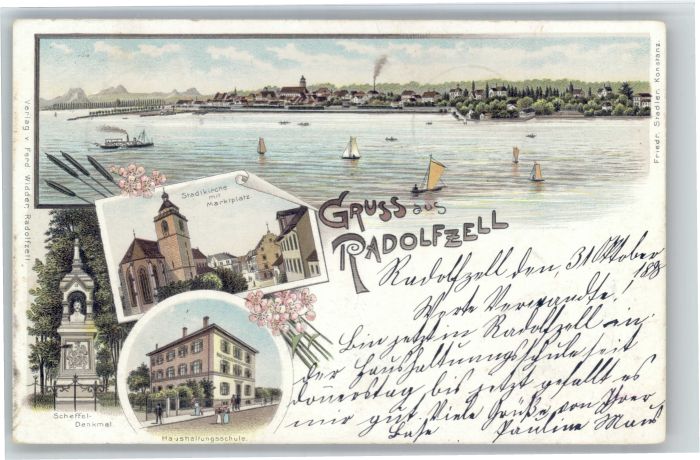 Verlag v. Ferd. Widder, Radolfzell.
Friedr. Stadler, Konstanz.
Stadtkirche
mit
Marktplatz.
GRUSS aus
RADOLFZELL
Scheffel-
Denkmal.
Haushaltungsschule.
Radolfzell den, 31 Oktober
189
Werte Verwandte!
Bin jetzt in Radolfzell in
der Haushaltungsschule seit
donnerstag bis jetzt gefällt es
mir gut. Viele Grüße von Eurer
Base Pauline